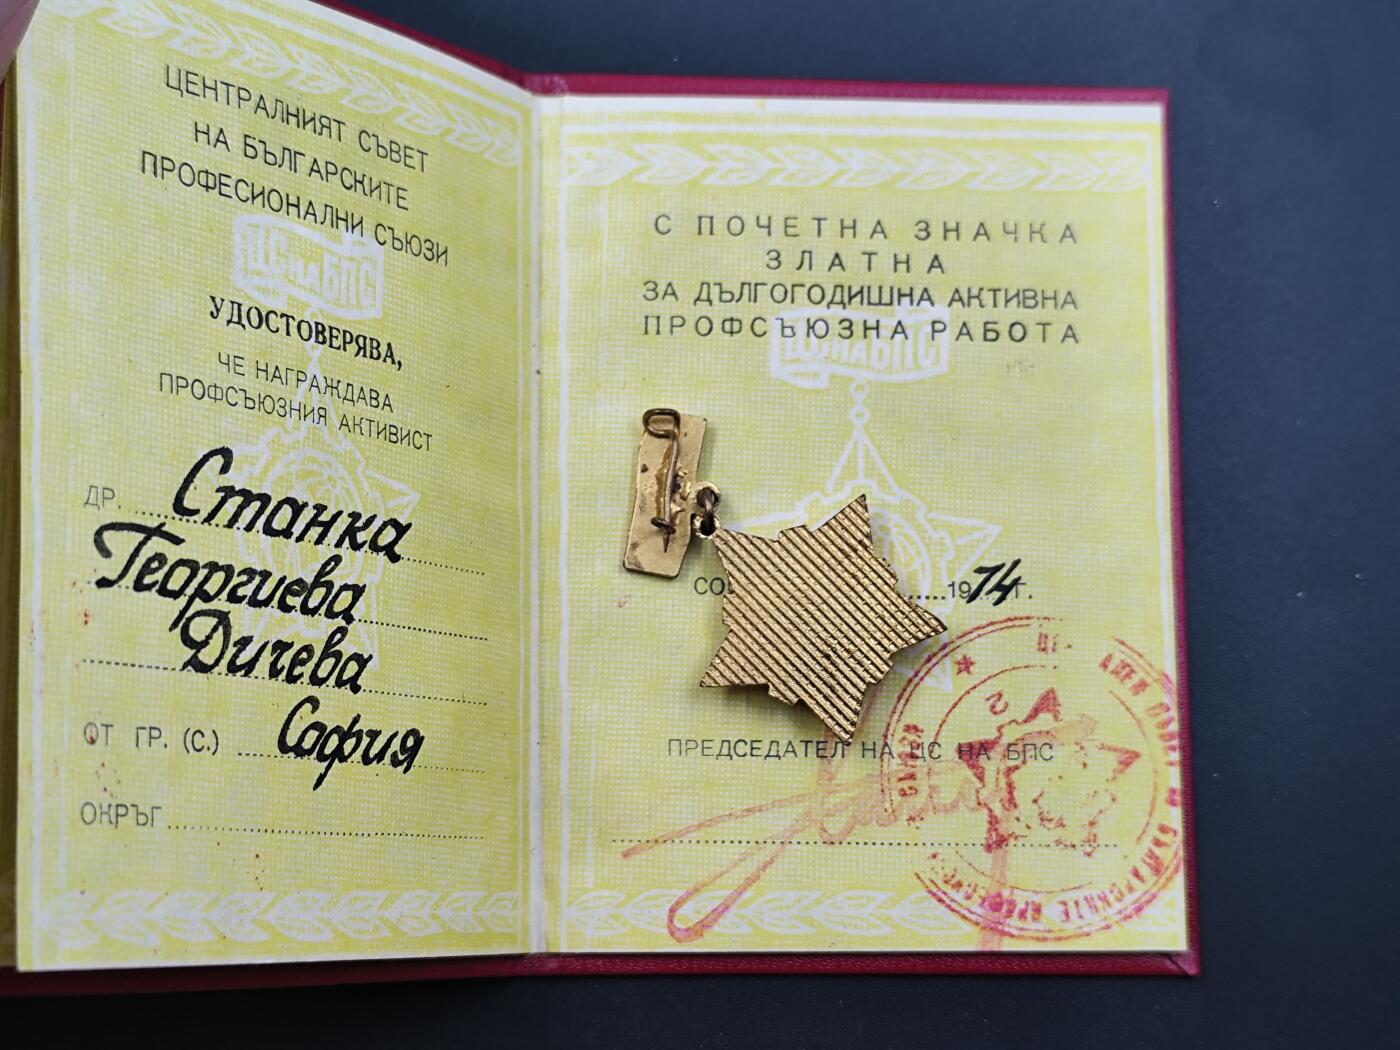 ЦЕНТРАЛНИЯТ СЪВЕТ
НА БЪЛГАРСКИТЕ
ПРОФЕСИОНАЛНИ СЪЮЗИ
ЦС на БПС
УДОСТОВЕРЯВА,
ЧЕ НАГРАЖДАВА
ПРОФСЪЮЗНИЯ АКТИВИСТ
ДР. Станка
Георгиева
Дичева
ОТ ГР. (С.) София
ОКРЪГ
С ПОЧЕТНА ЗНАЧКА
ЗЛАТНА
ЗА ДЪЛГОГОДИШНА АКТИВНА
ПРОФСЪЮЗНА РАБОТА
ЦС на БПС
1974 г.
ПРЕДСЕДАТЕЛ НА ЦС НА БПС
БЪЛГАРСКИТЕ